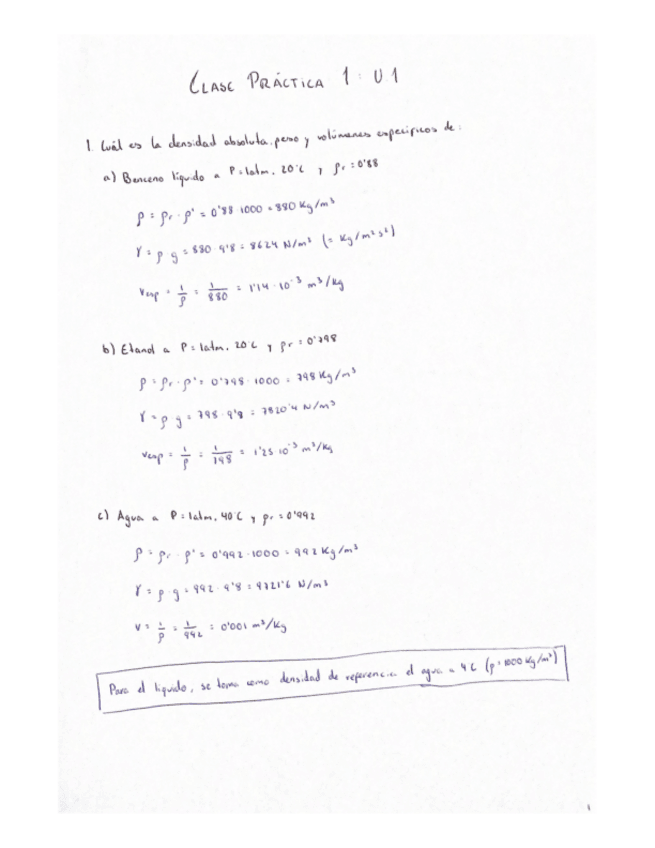 CLASE PRÁCTICA 1: U.1
1. Cuál es la densidad absoluta, peso y volúmenes específicos de:
a) Benceno líquido a P=1atm, 20˚C y ρr = 0'88
ρ = ρr · ρ' = 0'88 · 1000 = 880 Kg/m³
γ = ρ · g = 880 · 9'8 = 8624 N/m³ (= Kg/m²s²)
vesp = 1/ρ = 1/880 = 1'14 · 10⁻³ m³/Kg
b) Etanol a P=1atm, 20˚C y ρr = 0'798
ρ = ρr · ρ' = 0'798 · 1000 = 798 Kg/m³
γ = ρ · g = 798 · 9'8 = 7820'4 N/m³
vesp = 1/ρ = 1/798 = 1'25 · 10⁻³ m³/Kg
c) Agua a P=1atm, 40˚C y ρr = 0'992
ρ = ρr · ρ' = 0'992 · 1000 = 992 Kg/m³
γ = ρ · g = 992 · 9'8 = 9721'6 N/m³
v = 1/ρ = 1/992 = 0'001 m³/Kg
Para el líquido, se toma como densidad de referencia el agua a 4˚C (ρ=1000 Kg/m³)
1